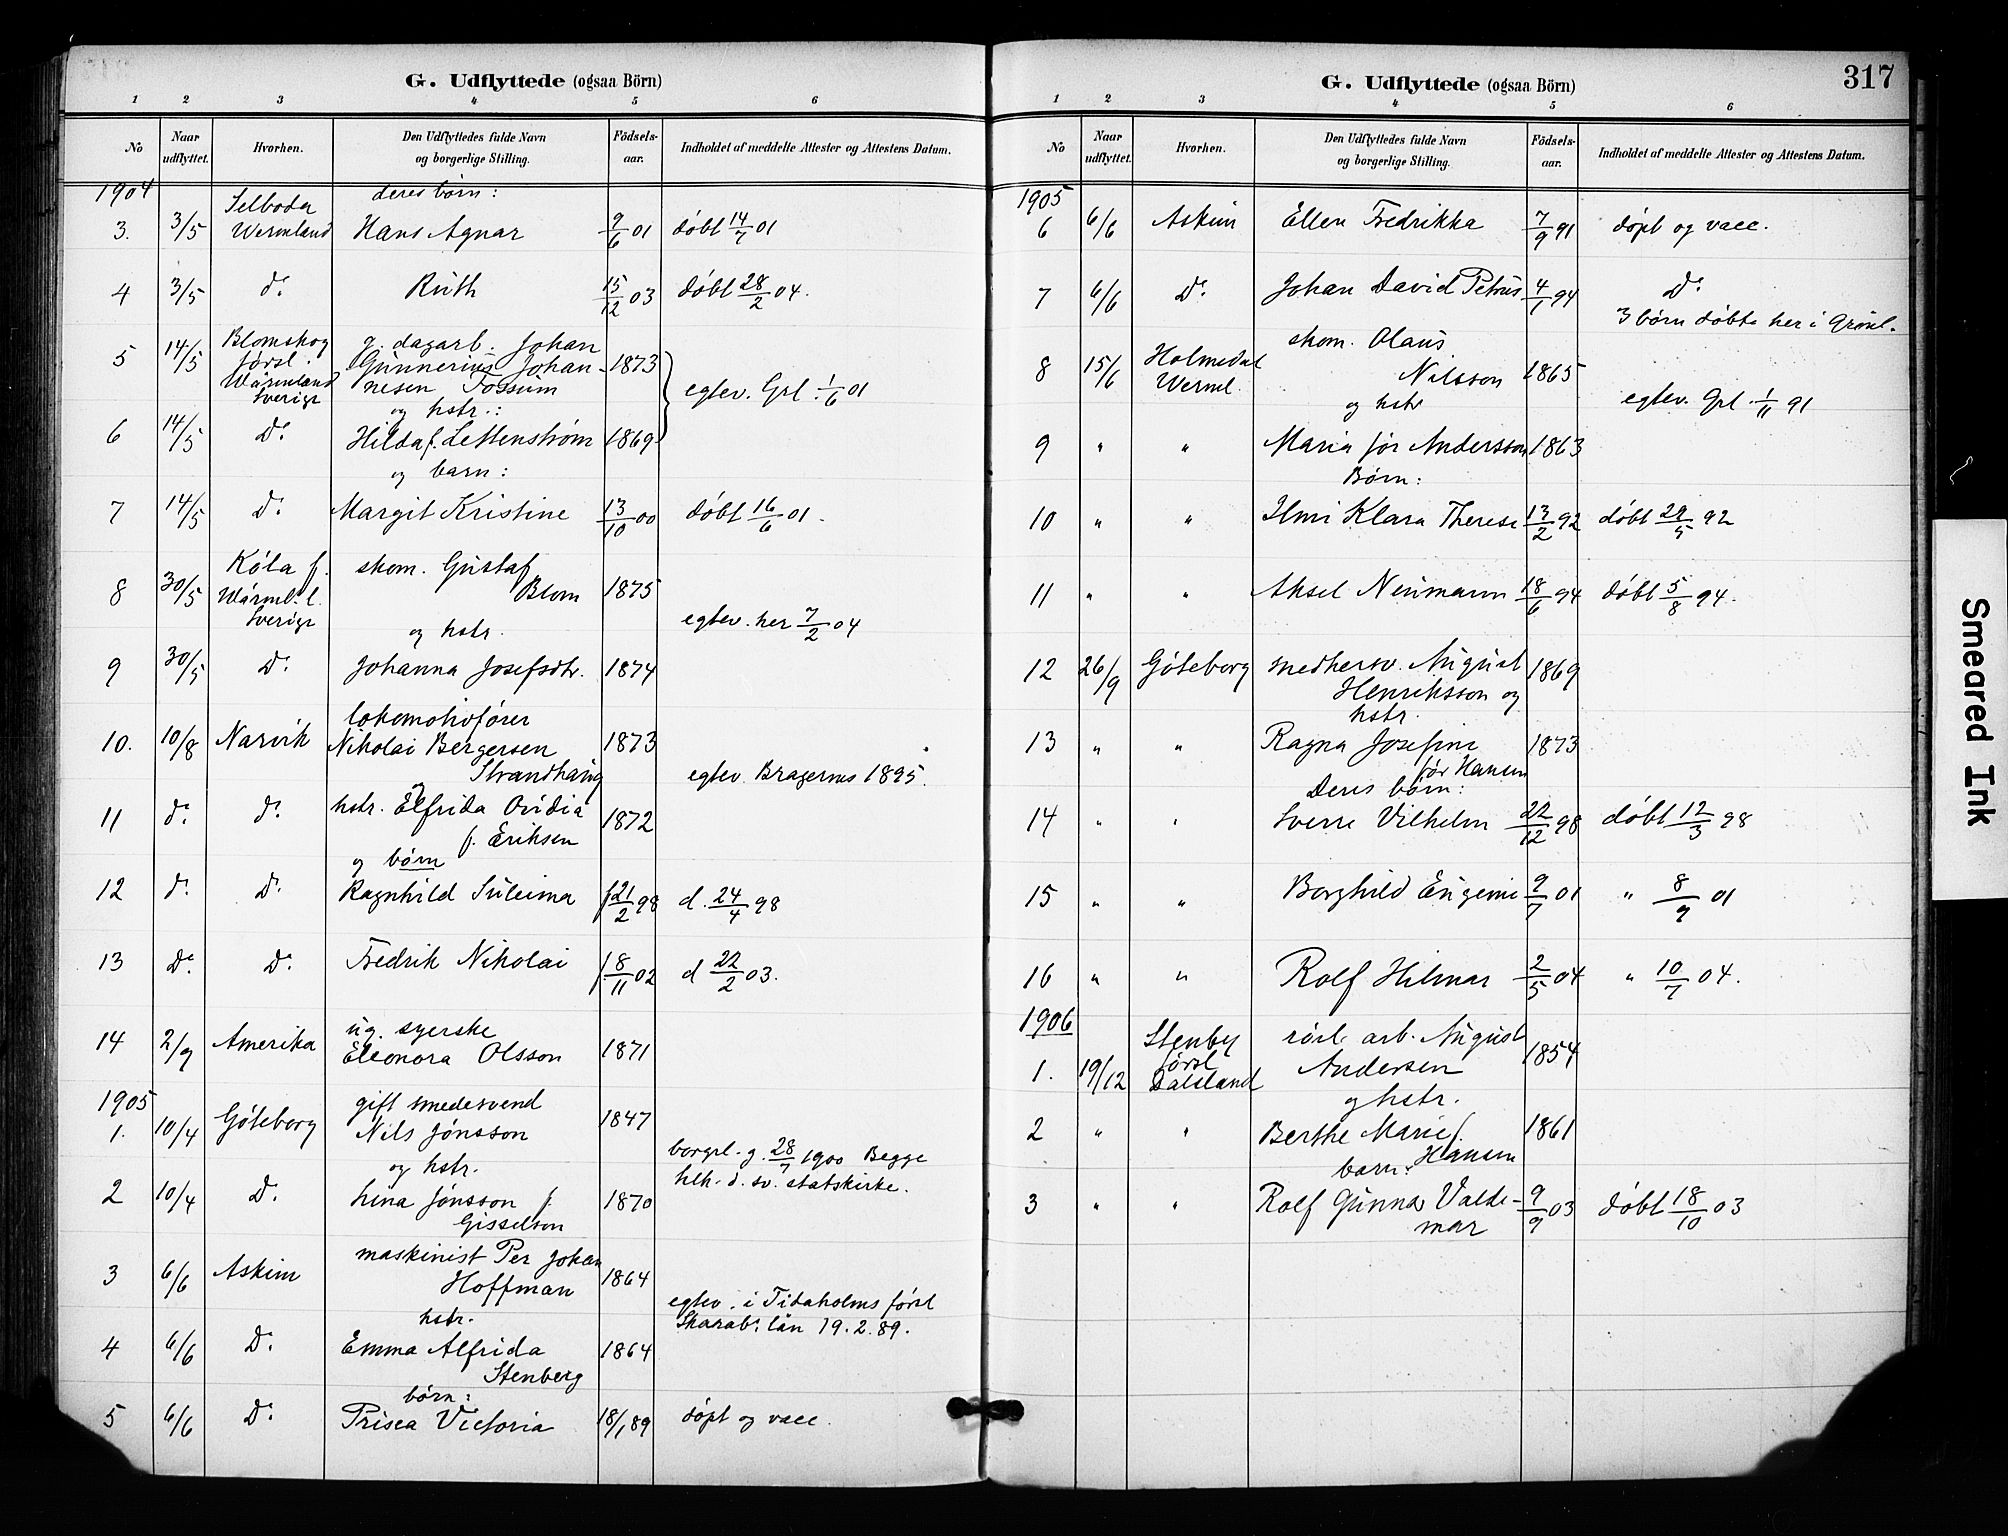 G. Udflyttede (ogsaa Börn)
1 2 3 4 5 6
No
Naar udflyttet.
Hvorhen.
Den Udflyttedes fulde Navn og borgerlige Stilling.
Födsels-aar.
Indholdet af meddelte Attester og Attestens Datum.
1904 deres børn:
3. 3/5 Selboda Wermland Hans Agnar 9/6 01 døbt 14/7 01
4 3/5 do. Ruth 15/12 03 døbt 28/2 04.
5 14/5 Blomskog førsl. Wärmland Sverige g. dagarb. Johan Gunnerius Johannesen Fossum 1873 egtev. Grl. 1/6 01
og hstr.:
6 14/5 Do. Hilda f. Lettenstrøm 1869
og barn:
7 14/5 Do. Margit Kristine 13/10 00 døbt 16/6 01.
8 30/5 Køla f. Wärml. l. Sverige skom. Gustaf Blom 1875
og hstr. egtev. her 7/2 04
9 30/5 Do. Johanna Josefsdtr. 1874
10. 10/8 Narvik lokomotivfører Nikolai Bergersen Strandhaug 1873 egtev. Bragernes 1895.
11 do. do. hstr. Elfrida Ovidia f. Eriksen 1872
og børn
12 do. Do. Ragnhild Suleima f 21/2 98 d. 24/4 98
13 Do. Do. Fredrik Nikolai f 8/11 02 d 22/2 03.
14 2/9 Amerika ug. syerske Eleonora Olsson 1871
1905
1. 10/4 Göteborg gift smedesvend Nils Jönsson 1847
og hstr. borgrl. g. 28/7 1900 Begge
2 10/4 Do. Lina Jönsson f. Gisselson 1870 hlh. d. sv. statskirke.
3 6/6 Askim maskinist Per Johan Hoffman 1864
hstr. egtev. i Tidaholms førsl Skarab. län 19.2.89.
4 6/6 Do. Emma Alfrida Stenberg 1864
børn:
5 6/6 Do. Prisca Victoria 18/1 89 døpt og vacc.
317
G. Udflyttede (ogsaa Börn)
1 2 3 4 5 6
No
Naar udflyttet.
Hvorhen.
Den Udflyttedes fulde Navn og borgerlige Stilling.
Födsels-aar.
Indholdet af meddelte Attester og Attestens Datum.
1905
6 6/6 Askim Ellen Fredrikka 7/9 91 døpt og vacc.
7 6/6 Do. Johan David Petrus 4/7 94 Do.
3 børn døbte her i Grønl.
8 15/6 Holmedal Werml. skom. Olaus Nilsson 1865
og hstr egtev. Grl. 1/11 91
9 " " Maria før Andersson 1863
Børn:
10 " " Ilmi Klara Therese 13/2 92 døbt 29/5 92
11 " " Aksel Neumann 18/6 94 døbt 5/8 94.
12 26/9 Göteborg smedhersv. August Henriksson og 1869
hstr.
13 " " Ragna Josefine før Hansen 1873
Deres børn:
14 " " Sverre Vilhelm 22/12 98 døbt 12/3 98
15 " " Borghild Eugenie 9/7 01 " 8/9 01
16 " " Rolf Hilmar 2/5 04 " 10/7 04.
1906
1. 19/12 Stenby førsl Dalsland rørl. arb. August Andersen 1854
og hstr.
2 " " Berthe Marie f. Hansen 1861
barn:
3 " " Rolf Gunnar Valdemar 9/9 03 døbt 18/10 03
Smeared Ink